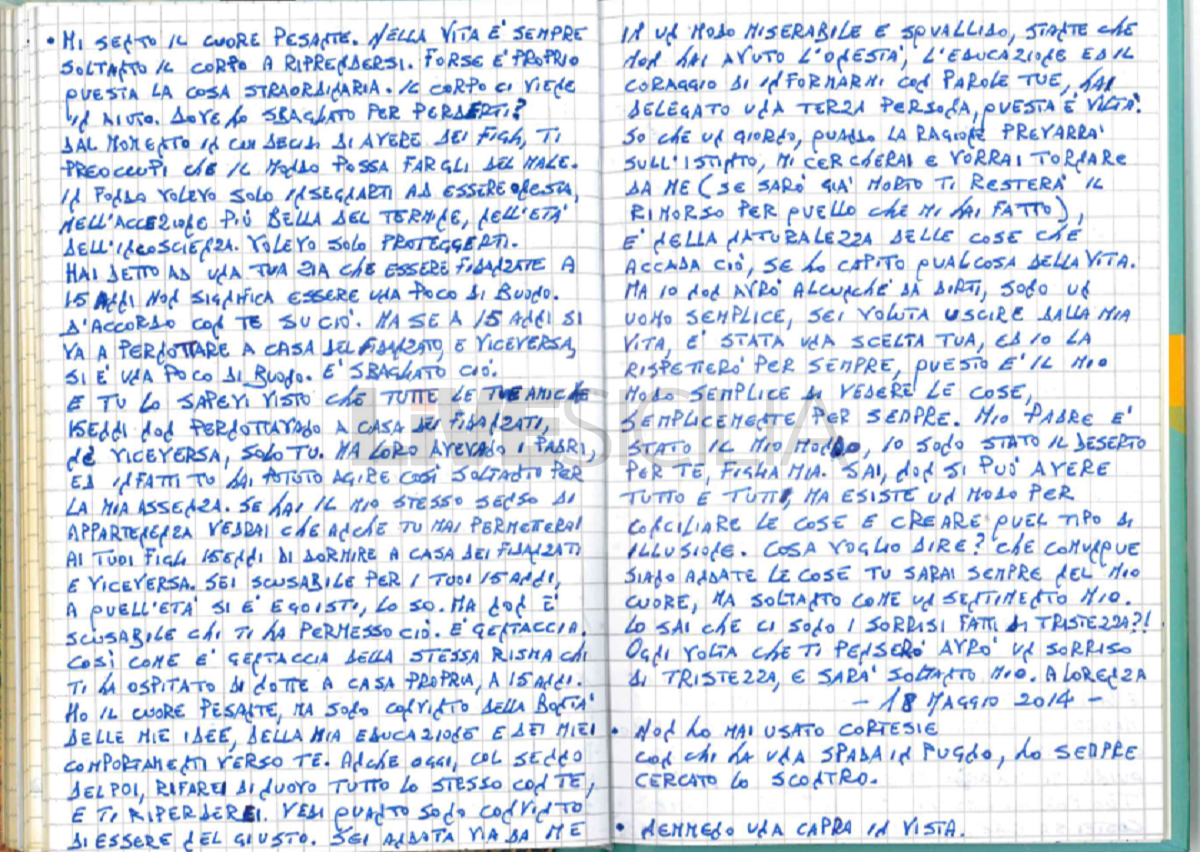 • MI SENTO IL CUORE PESANTE. NELLA VITA È SEMPRE
SOLTANTO IL CORPO A RIPRENDERSI. FORSE È PROPRIO
QUESTA LA COSA STRAORDINARIA. IL CORPO CI VIENE
IN AIUTO. DOVE HO SBAGLIATO PER PERDERTI?
DAL MOMENTO IN CUI DECIDI DI AVERE DEI FIGLI, TI
PREOCCUPI CHE IL MONDO POSSA FARGLI DEL MALE.
IN FONDO VOLEVO SOLO INSEGNARTI AD ESSERE ONESTA,
NELL'ACCEZIONE PIÙ BELLA DEL TERMINE, NELL'ETÀ
DELL'INCOSCIENZA. VOLEVO SOLO PROTEGGERTI.
HAI DETTO AD UNA TUA ZIA CHE ESSERE FIDANZATE A
15 ANNI NON SIGNIFICA ESSERE UNA POCO DI BUONO.
D'ACCORDO CON TE SU CIÒ. MA SE A 15 ANNI SI
VA A PERNOTTARE A CASA DEL FIDANZATO, E VICEVERSA,
SI È UNA POCO DI BUONO. È SBAGLIATO CIÒ.
E TU LO SAPEVI VISTO CHE TUTTE LE TUE AMICHE
15ENNI NON PERNOTTAVANO A CASA DEI FIDANZATI,
NÉ VICEVERSA, SOLO TU. MA LORO AVEVANO I PADRI,
ED INFATTI TU HAI POTUTO AGIRE COSÌ SOLTANTO PER
LA MIA ASSENZA. SE HAI IL MIO STESSO SENSO DI
APPARTENENZA VEDRAI CHE ANCHE TU MAI PERMETTERAI
AI TUOI FIGLI 15ENNI DI DORMIRE A CASA DEI FIDANZATI
E VICEVERSA. SEI SCUSABILE PER I TUOI 15 ANNI,
A QUELL'ETÀ SI È EGOISTI, LO SO. MA NON È
SCUSABILE CHI TI HA PERMESSO CIÒ. È GENTACCIA.
COSÌ COME È GENTACCIA DELLA STESSA RISMA CHI
TI HA OSPITATO DI NOTTE A CASA PROPRIA, A 15 ANNI.
HO IL CUORE PESANTE, MA SONO CONVINTO DELLA BONTÀ
DELLE MIE IDEE, DELLA MIA EDUCAZIONE E DEI MIEI
COMPORTAMENTI VERSO TE. ANCHE OGGI, COL SENNO
DEL POI, RIFAREI DI NUOVO TUTTO LO STESSO CON TE,
E TI RIPERDEREI. VEDI QUANTO SONO CONVINTO
DI ESSERE NEL GIUSTO. SEI ANDATA VIA DA ME
IN UN MODO MISERABILE E SQUALLIDO, STANTE CHE
NON HAI AVUTO L'ONESTÀ, L'EDUCAZIONE ED IL
CORAGGIO DI INFORMARMI CON PAROLE TUE, HAI
DELEGATO UNA TERZA PERSONA, QUESTA È VILTÀ.
SO CHE UN GIORNO, QUANDO LA RAGIONE PREVARRÀ
SULL'ISTINTO, MI CERCHERAI E VORRAI TORNARE
DA ME (SE SARÒ GIÀ MORTO TI RESTERÀ IL
RIMORSO PER QUELLO CHE MI HAI FATTO),
È NELLA NATURALEZZA DELLE COSE CHE
ACCADA CIÒ, SE HO CAPITO QUALCOSA DELLA VITA.
MA IO NON AVRÒ ALCUNCHÉ DA DIRTI, SONO UN
UOMO SEMPLICE, SEI VOLUTA USCIRE DALLA MIA
VITA, È STATA UNA SCELTA TUA, ED IO LA
RISPETTERÒ PER SEMPRE, QUESTO È IL MIO
MODO SEMPLICE DI VEDERE LE COSE,
SEMPLICEMENTE PER SEMPRE. MIO PADRE È
STATO IL MIO MONDO, IO SONO STATO IL DESERTO
PER TE, FIGLIA MIA. SAI, NON SI PUÒ AVERE
TUTTO E TUTTI, MA ESISTE UN MODO PER
CONCILIARE LE COSE E CREARE QUEL TIPO DI
ILLUSIONE. COSA VOGLIO DIRE? CHE COMUNQUE
SIANO ANDATE LE COSE TU SARAI SEMPRE NEL MIO
CUORE, MA SOLTANTO COME UN SENTIMENTO MIO.
LO SAI CHE CI SONO I SORRISI FATTI DI TRISTEZZA?!
OGNI VOLTA CHE TI PENSERÒ AVRÒ UN SORRISO
DI TRISTEZZA, E SARÀ SOLTANTO MIO. A LORENZA
- 18 MAGGIO 2014 -
• NON HO MAI USATO CORTESIE
CON CHI HA UNA SPADA IN PUGNO, HO SEMPRE
CERCATO LO SCONTRO.
• NEMMENO UNA CAPRA IN VISTA.
LIVESICILIA